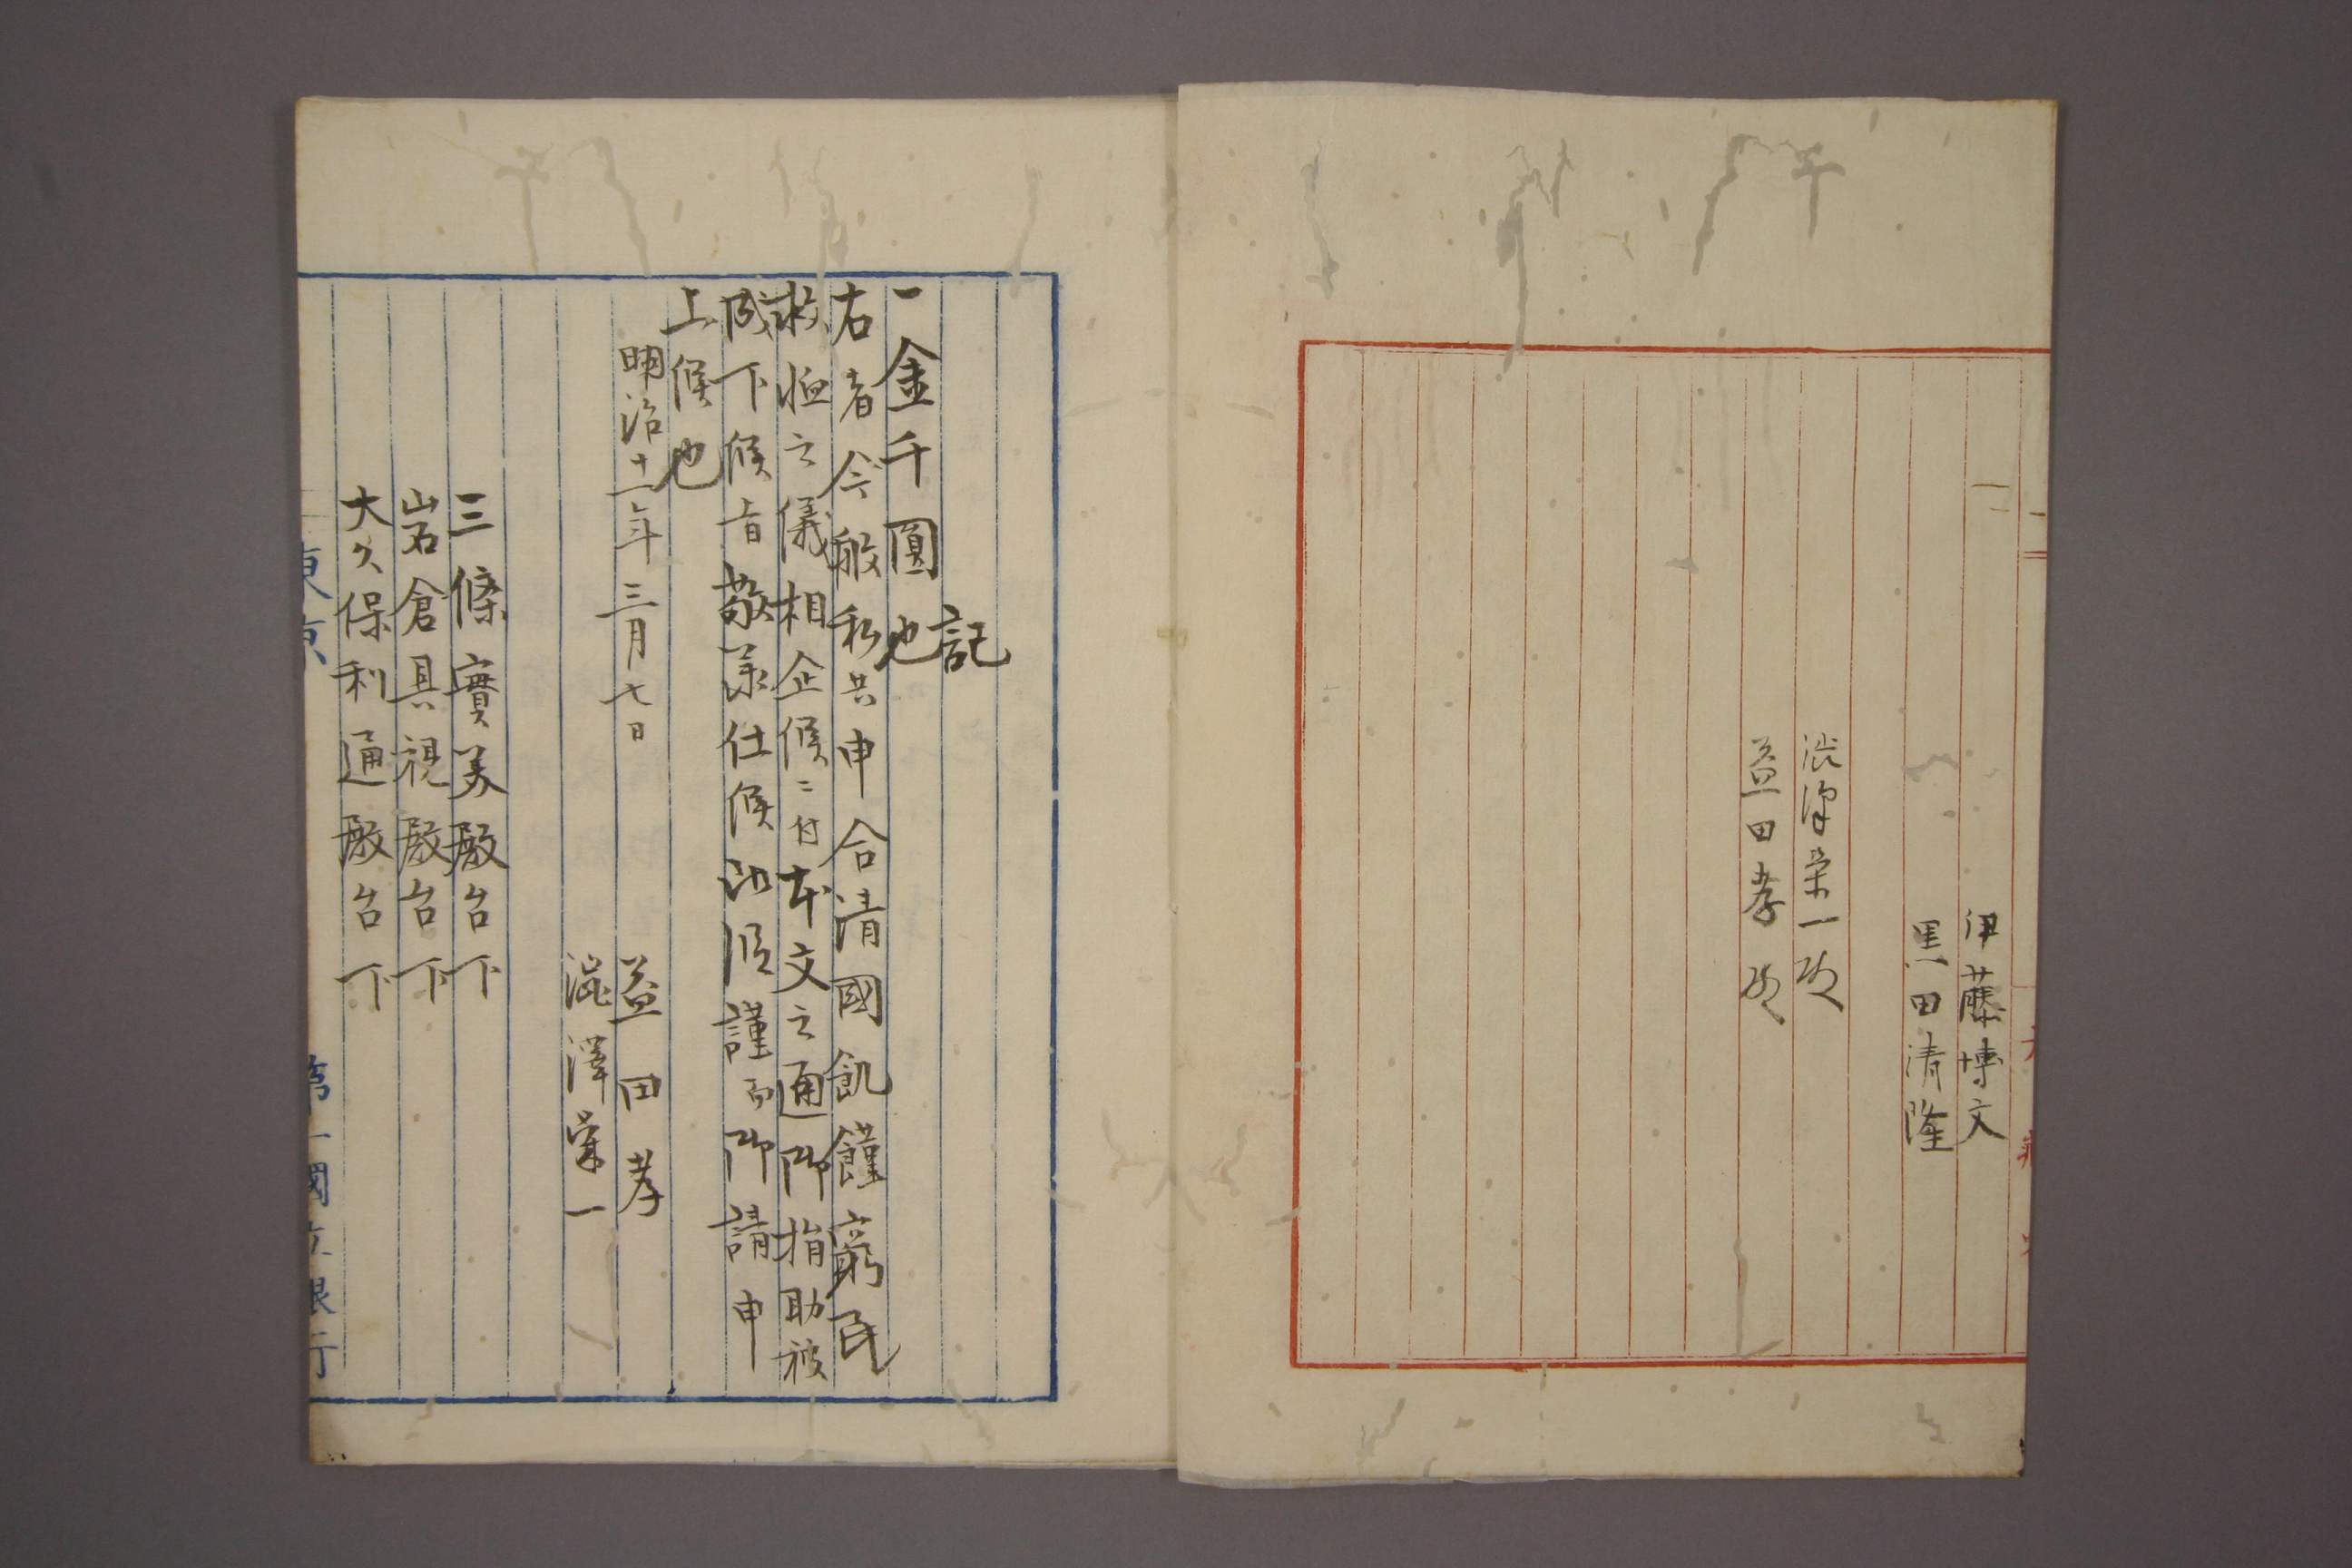 伊藤博文
黒田清隆
渋澤栄一殿
益田孝殿
記
一金千圓也
右者今般私共申合清國飢饉窮民
救恤之儀相企候ニ付本文之通御捐助被
成下候旨敬承仕候此段謹而御請申
上候也
明治十一年三月七日
益田孝
澁澤榮一
三條實美殿台下
岩倉具視殿台下
大久保利通殿台下
東京
第一國立銀行